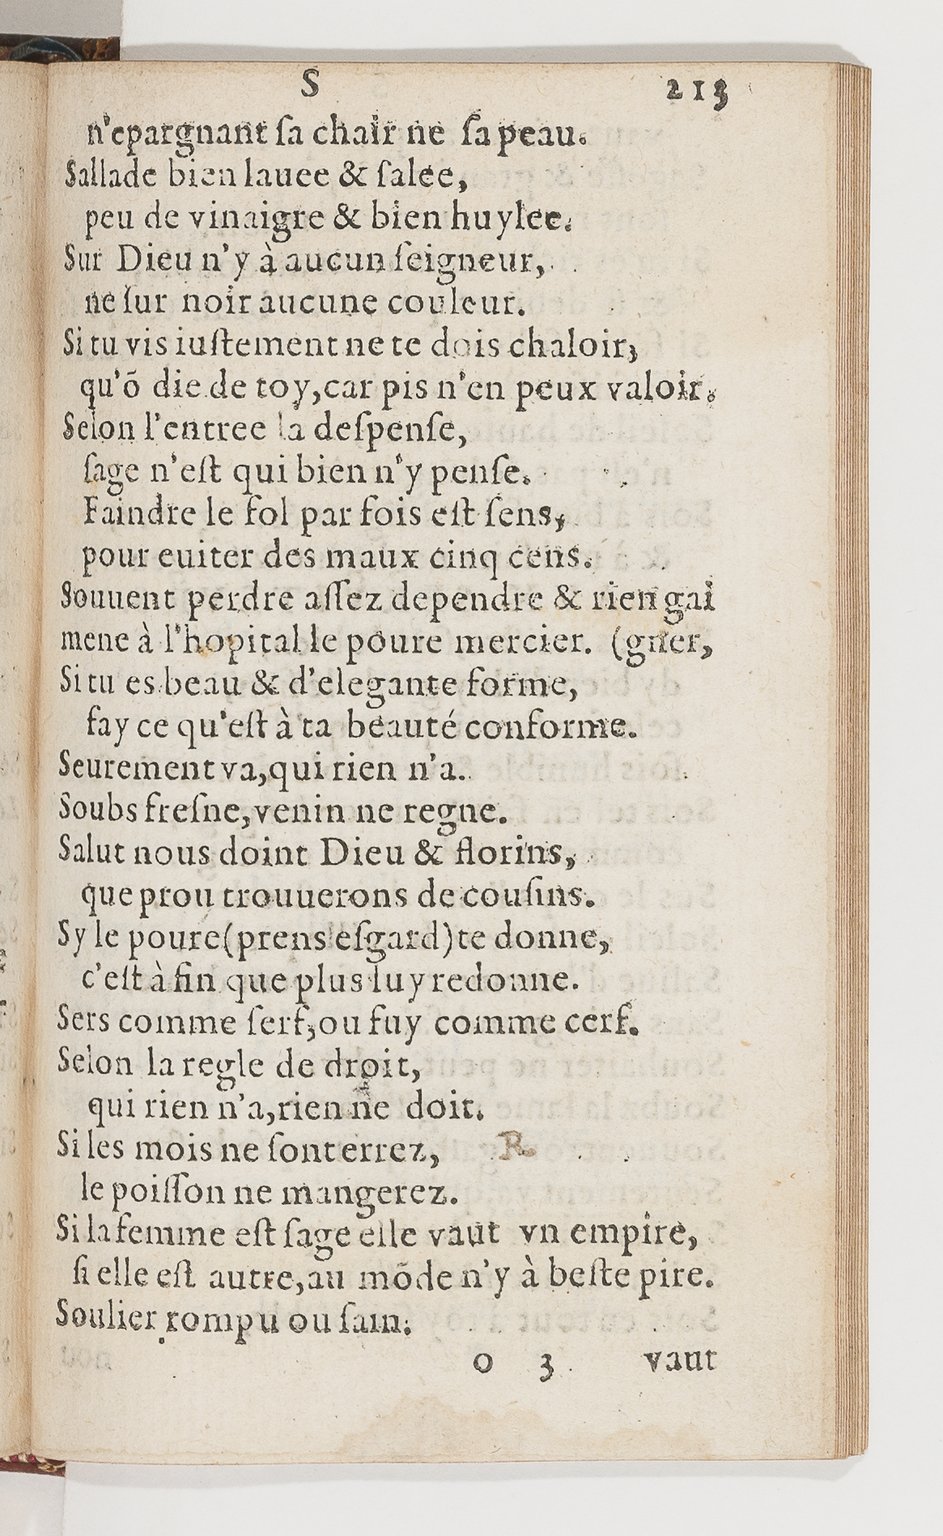 S 213
n'epargnant ſa chair ne ſa peau.
Sallade bien lauee & ſalée,
peu de vinaigre & bien huylee.
Sur Dieu n'y à aucun ſeigneur,
ne ſur noir aucune couleur.
Si tu vis iuſtement ne te dois chaloir,
qu'õ die de toy, car pis n'en peux valoir.
Selon l'entree la deſpenſe,
ſage n'eſt qui bien n'y penſe.
Faindre le fol par fois eſt ſens,
pour euiter des maux cinq cens.
Souuent perdre aſſez dependre & rien gai
mene à l'hopital le poure mercier. (gner,
Si tu es beau & d'elegante forme,
fay ce qu'eſt à ta beauté conforme.
Seurement va, qui rien n'a.
Soubs freſne, venin ne regne.
Salut nous doint Dieu & florins,
que prou trouuerons de couſins.
Sy le poure (prens eſgard) te donne,
c'eſt à fin que plus luy redonne.
Sers comme ſerf, ou fuy comme cerf.
Selon la regle de droit,
qui rien n'a, rien ne doit.
Si les mois ne ſont errez, R.
le poiſſon ne mangerez.
Si la femme eſt ſage elle vaut vn empire,
ſi elle eſt autre, au mõde n'y à beſte pire.
Soulier rompu ou ſain.
o 3 vaut